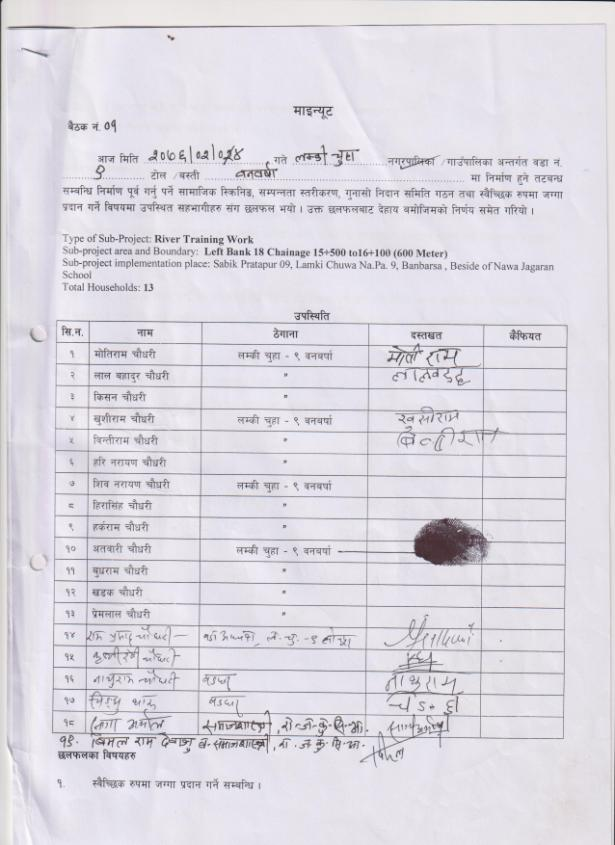 माइन्यूट
बैठक नं. ०१
आज मिति २०७६/०२/०२४ गते लम्की चुहा नगरपालिका /गाउंपालिका अन्तर्गत वडा नं.
९ टोल /बस्ती वनवर्षा मा निर्माण हुने तटबन्ध
सम्बन्धि निर्माण पूर्व गर्नु पर्ने सामाजिक स्किनिङ, सम्पन्नता स्तरीकरण, गुनासो निदान समिति गठन तथा स्वैच्छिक रुपमा जग्गा
प्रदान गर्ने विषयमा उपस्थित सहभागीहरु संग छलफल भयो । उक्त छलफलबाट देहाय बमोजिमको निर्णय समेत गरियो ।
Type of Sub-Project: River Training Work
Sub-project area and Boundary: Left Bank 18 Chainage 15+500 to16+100 (600 Meter)
Sub-project implementation place: Sabik Pratapur 09, Lamki Chuwa Na.Pa. 9, Banbarsa , Beside of Nawa Jagaran
School
Total Households: 13
उपस्थिति
सि.न. नाम ठेगाना दस्तखत कैफियत
१ मोतिराम चौधरी लम्की चुहा - ९ वनबर्षा मोती राम
२ लाल बहादुर चौधरी "
३ किसन चौधरी "
४ खुशीराम चौधरी लम्की चुहा - ९ वनबर्षा खुसीराम
५ विन्तीराम चौधरी "
६ हरि नरायण चौधरी "
७ शिव नरायण चौधरी लम्की चुहा - ९ वनबर्षा
८ हिरासिंह चौधरी "
९ हर्कराम चौधरी "
१० अतवारी चौधरी लम्की चुहा - ९ वनबर्षा
११ बुधराम चौधरी "
१२ खडक चौधरी "
१३ प्रेमलाल चौधरी "
१४ चौधरी
१५ चौधरी
१६ नाथुराम चौधरी नाथुराम
१७
१८ समाजशास्त्री, रा.ज.कु.सि.आ.
१९. विमल राम समाजशास्त्री, रा.ज.कु.सि.आ.
छलफलका विषयहरु
१. स्वैच्छिक रुपमा जग्गा प्रदान गर्ने सम्बन्धि ।